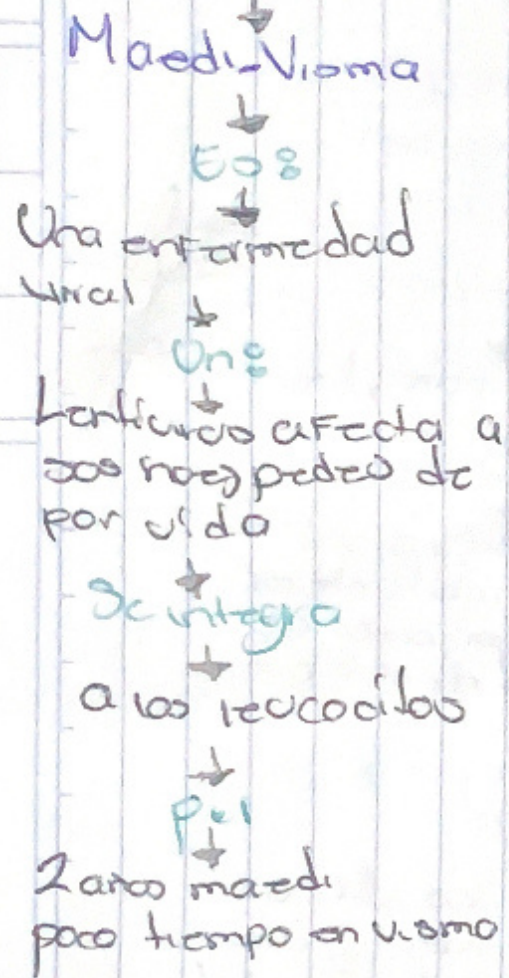 Maedi-Visma
Es:
Una enfermedad
viral
Un:
Lentivirus afecta a
sus huespedes de
por vida
Se integra
a los leucocitos
por
2 años maedi
poco tiempo en visma